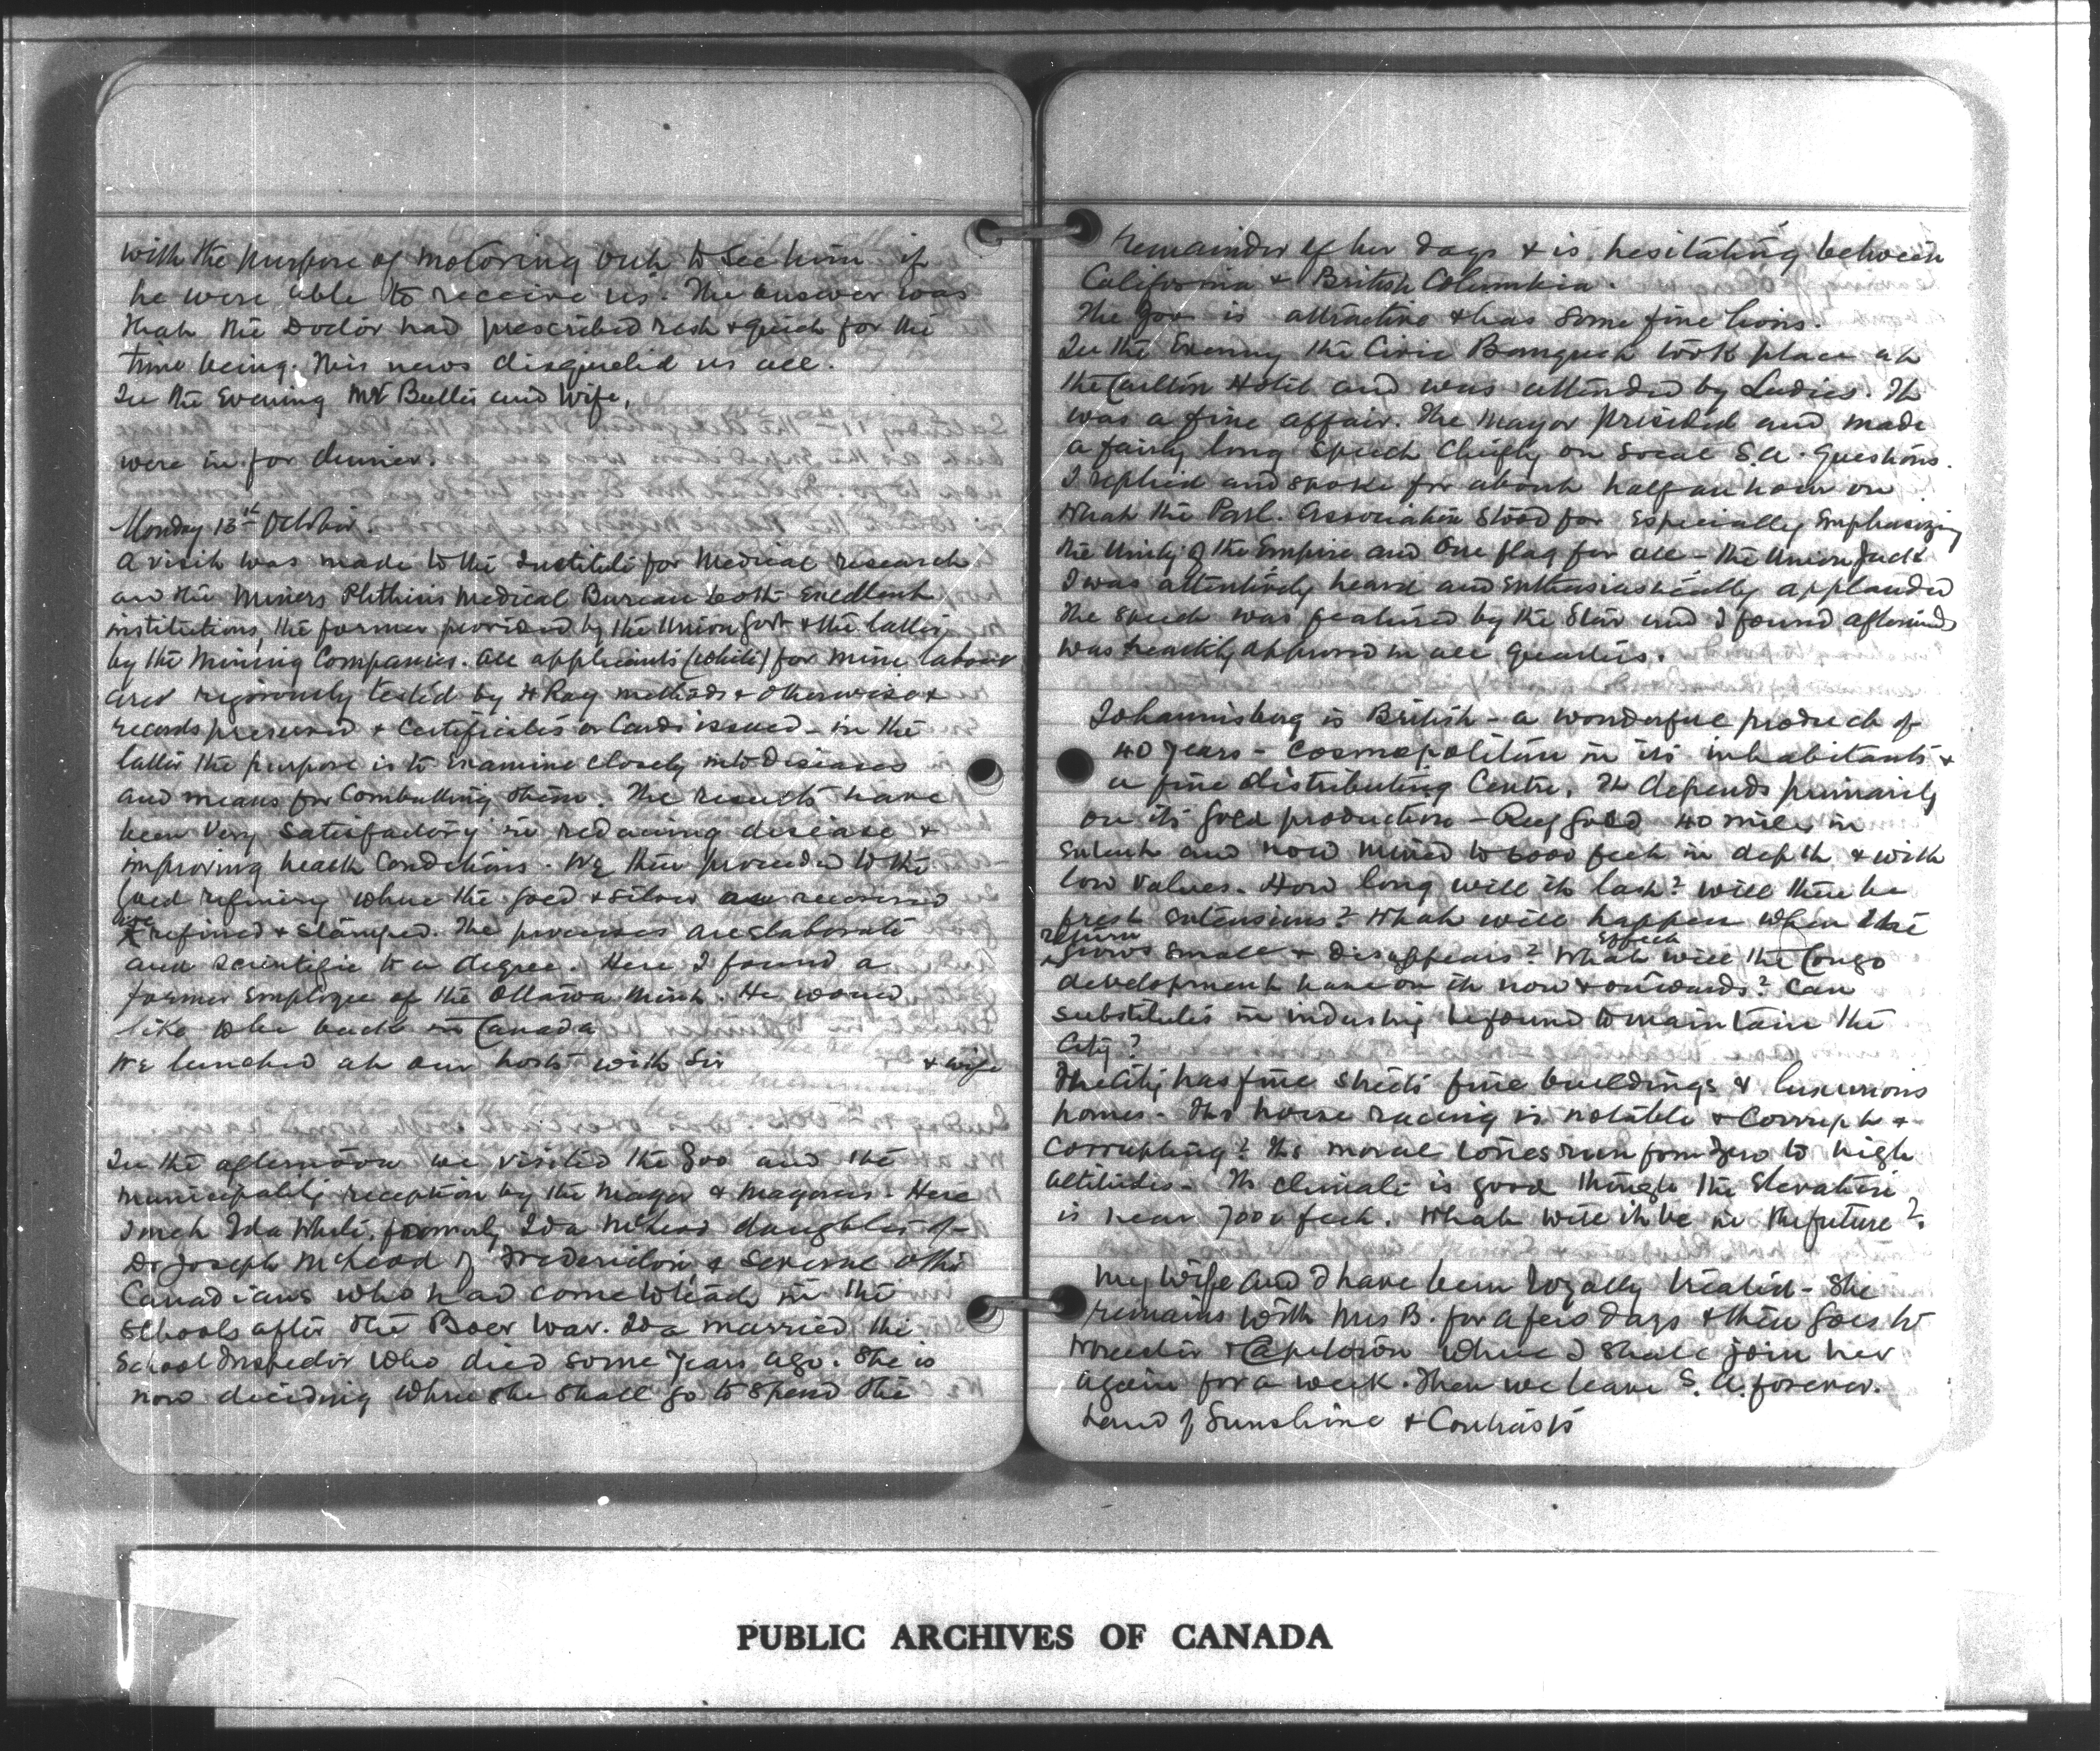 with the purpose of motoring out to see him if
he were able to receive us. The answer was
that the Doctor had prescribed rest & quiet for the
time being. This news disquieted us all.
In the Evening Mr and Wife,
were in for dinner.
Monday 13th October.
A visit was made to the Institute for Medical research
and the Miners Phthisis Medical Bureau both Excellent
institutions, the former provided by the Union Govt & the latter
by the Mining Companies. All applicants (white) for mine labour
are rigorously tested by X Ray methods & otherwise &
records preserved & Certificates or Cards issued - in the
latter the purpose is to examine closely into Diseases
and means for Combatting them. The results have
been very satisfactory in reducing disease &
improving health Conditions. We then proceeded to the
Gold refinery where the gold & silver are received
are refined & stamped. The processes are elaborate
and scientific to a degree. Here I found a
former Employee of the Ottawa Mint. He would
like to be back in Canada
We lunched at our hosts with Sir & wife
In the afternoon we visited the Zoo and the
municipality reception by the Mayor & Mayoress. Here
I met Ida White, formerly Ida McLeod daughter of
Dr Joseph McLeod of Fredericton & several other
Canadians who had come to teach in the
Schools after the Boer War. Ida married the
School Inspector who died some years ago. She is
now deciding where she shall go to spend the
remainder of her days & is hesitating between
California & British Columbia.
The Zoo is attractive & has some fine lions.
In the Evening the Civic Banquet took place at
the Carlton Hotel and was attended by Ladies. It
was a fine affair. The Mayor presided and made
a fairly long speech chiefly on S.A. Questions.
I replied and spoke for about half an hour on
what the Parl. Association stood for especially emphasizing
the Unity of the Empire and One flag for all - the Union Jack
I was attentively heard and enthusiastically applauded
The speech was featured by the Star and I found afterwards
was approved in all quarters.
Johannisberg is British - a wonderful product of
40 years - Cosmopolitan in its inhabitants &
a fine distributing Centre. It depends primarily
on its gold production - Reef Gold 40 miles in
extent and now mined to 6000 feet in depth & with
low values. How long will it last? Will there be
fresh extensions? What will happen when the
return grows small & disappears? What effect will the Congo
development have on it now & onwards? Can
substitutes in industry be found to maintain the
City?
The City has fine streets fine buildings & luxurious
homes. Its horse racing is notable & Corrupt &
Corrupting? Its moral tones run from Zero to high
altitudes. Its climate is good though the Elevation
is near 7000 feet. What will it be in the future?
My wife and I have been loyally treated - She
remains with Mrs B. for a few days & then goes to
& Capetown where I shall join her
again for a week. Then we leave S. A. forever.
Land of Sunshine & Contrasts
PUBLIC ARCHIVES OF CANADA